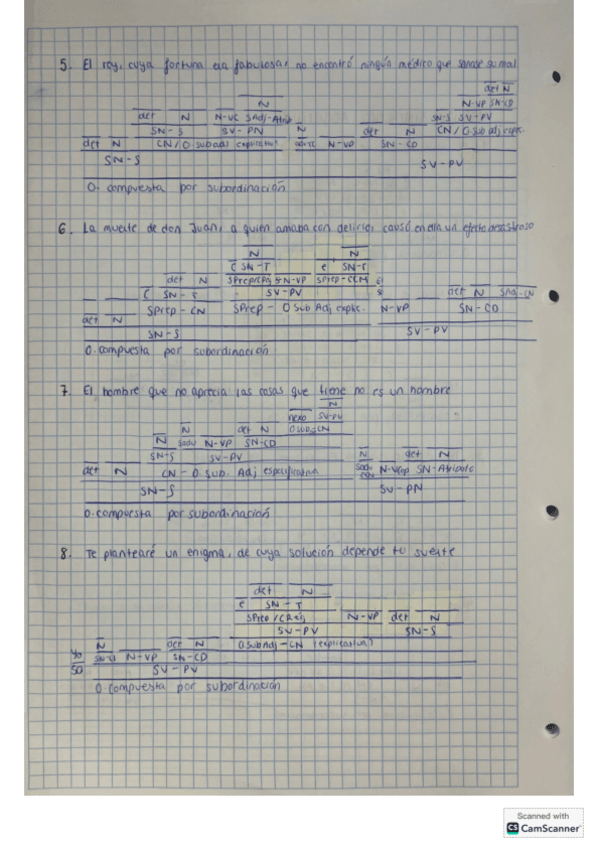 5. El rey, cuya fortuna era fabulosa, no encontró ningún médico que sanase su mal
det N
N N-VP SN-CD
det N N-VC SAdj-Atrib SN-S SV-PV
SN-S SV-PN N det N CN/O.sub adj explc.
det N CN/O.subadj explicativa N-VP SN-CD
SN-S SV-PV
O. compuesta por subordinación
6. La muerte de don Juan, a quien amaba con delirio, causó en ella un efecto desastroso
N N
E SN-T e SN-T
det N N-VP SPrep-CCM
E SN-T SV-PV det N SAdj-CN
det N SPrep-CN SPrep - O Sub Adj explc. N-VP SN-CD
SN-S SV-PV
O. compuesta por subordinación
7. El hombre que no aprecia las cosas que tiene no es un hombre
N
nexo SV-PV
N det N O.sub-CN
N Sadv N-VP SN-CD N det N
SN-S SV-PV
det N CN - O sub. Adj especificativa N-Vcop SN-Atributo
SN-S SV-PN
O. compuesta por subordinación
8. Te plantearé un enigma, de cuya solución depende tu suerte
det N
e SN-T
SPrep/CReg N-VP det N
SV-PV SN-S
Yo N det N O SubAdj-CN (explicativa)
SO N-VP SN-CD
SV-PV
O. compuesta por subordinación
Scanned with
CS CamScanner